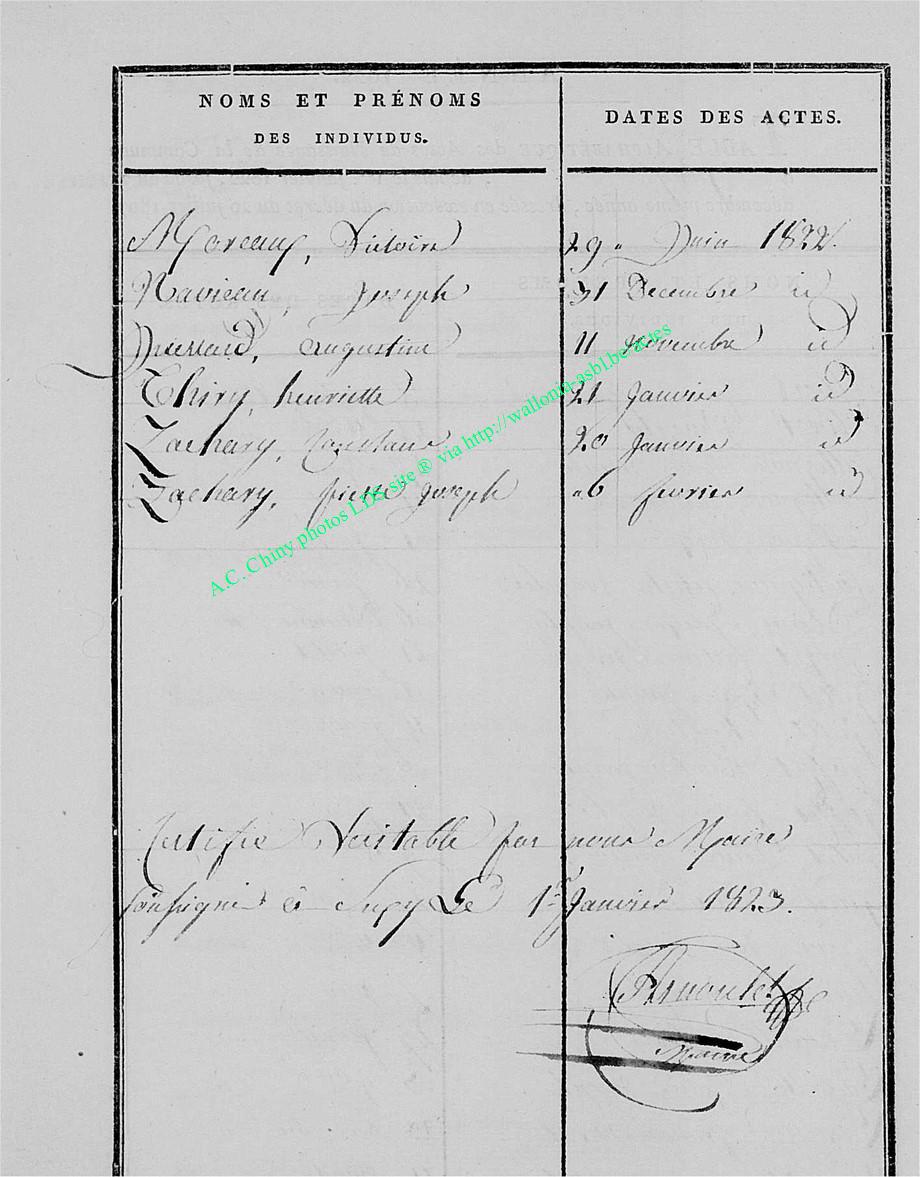 NOMS ET PRÉNOMS
DES INDIVIDUS.
DATES DES ACTES.
Moreaux, Victoire 29 " Juin 1822.
Navieau, Joseph 31 Decembre id
augustine 11 Novembre id
Thiry, henriette 21 Janvier id
Zachary, Constance 20 Janvier id
Zachary, pierre Joseph 6 fevrier id
A.C. Chiny photos LDS site ® via http://wallonia-asbl.be/actes
Certifié Veritable par nous Maire
sousigné à Suxy Le 1er Janvier 1823.
Arnould
Maire